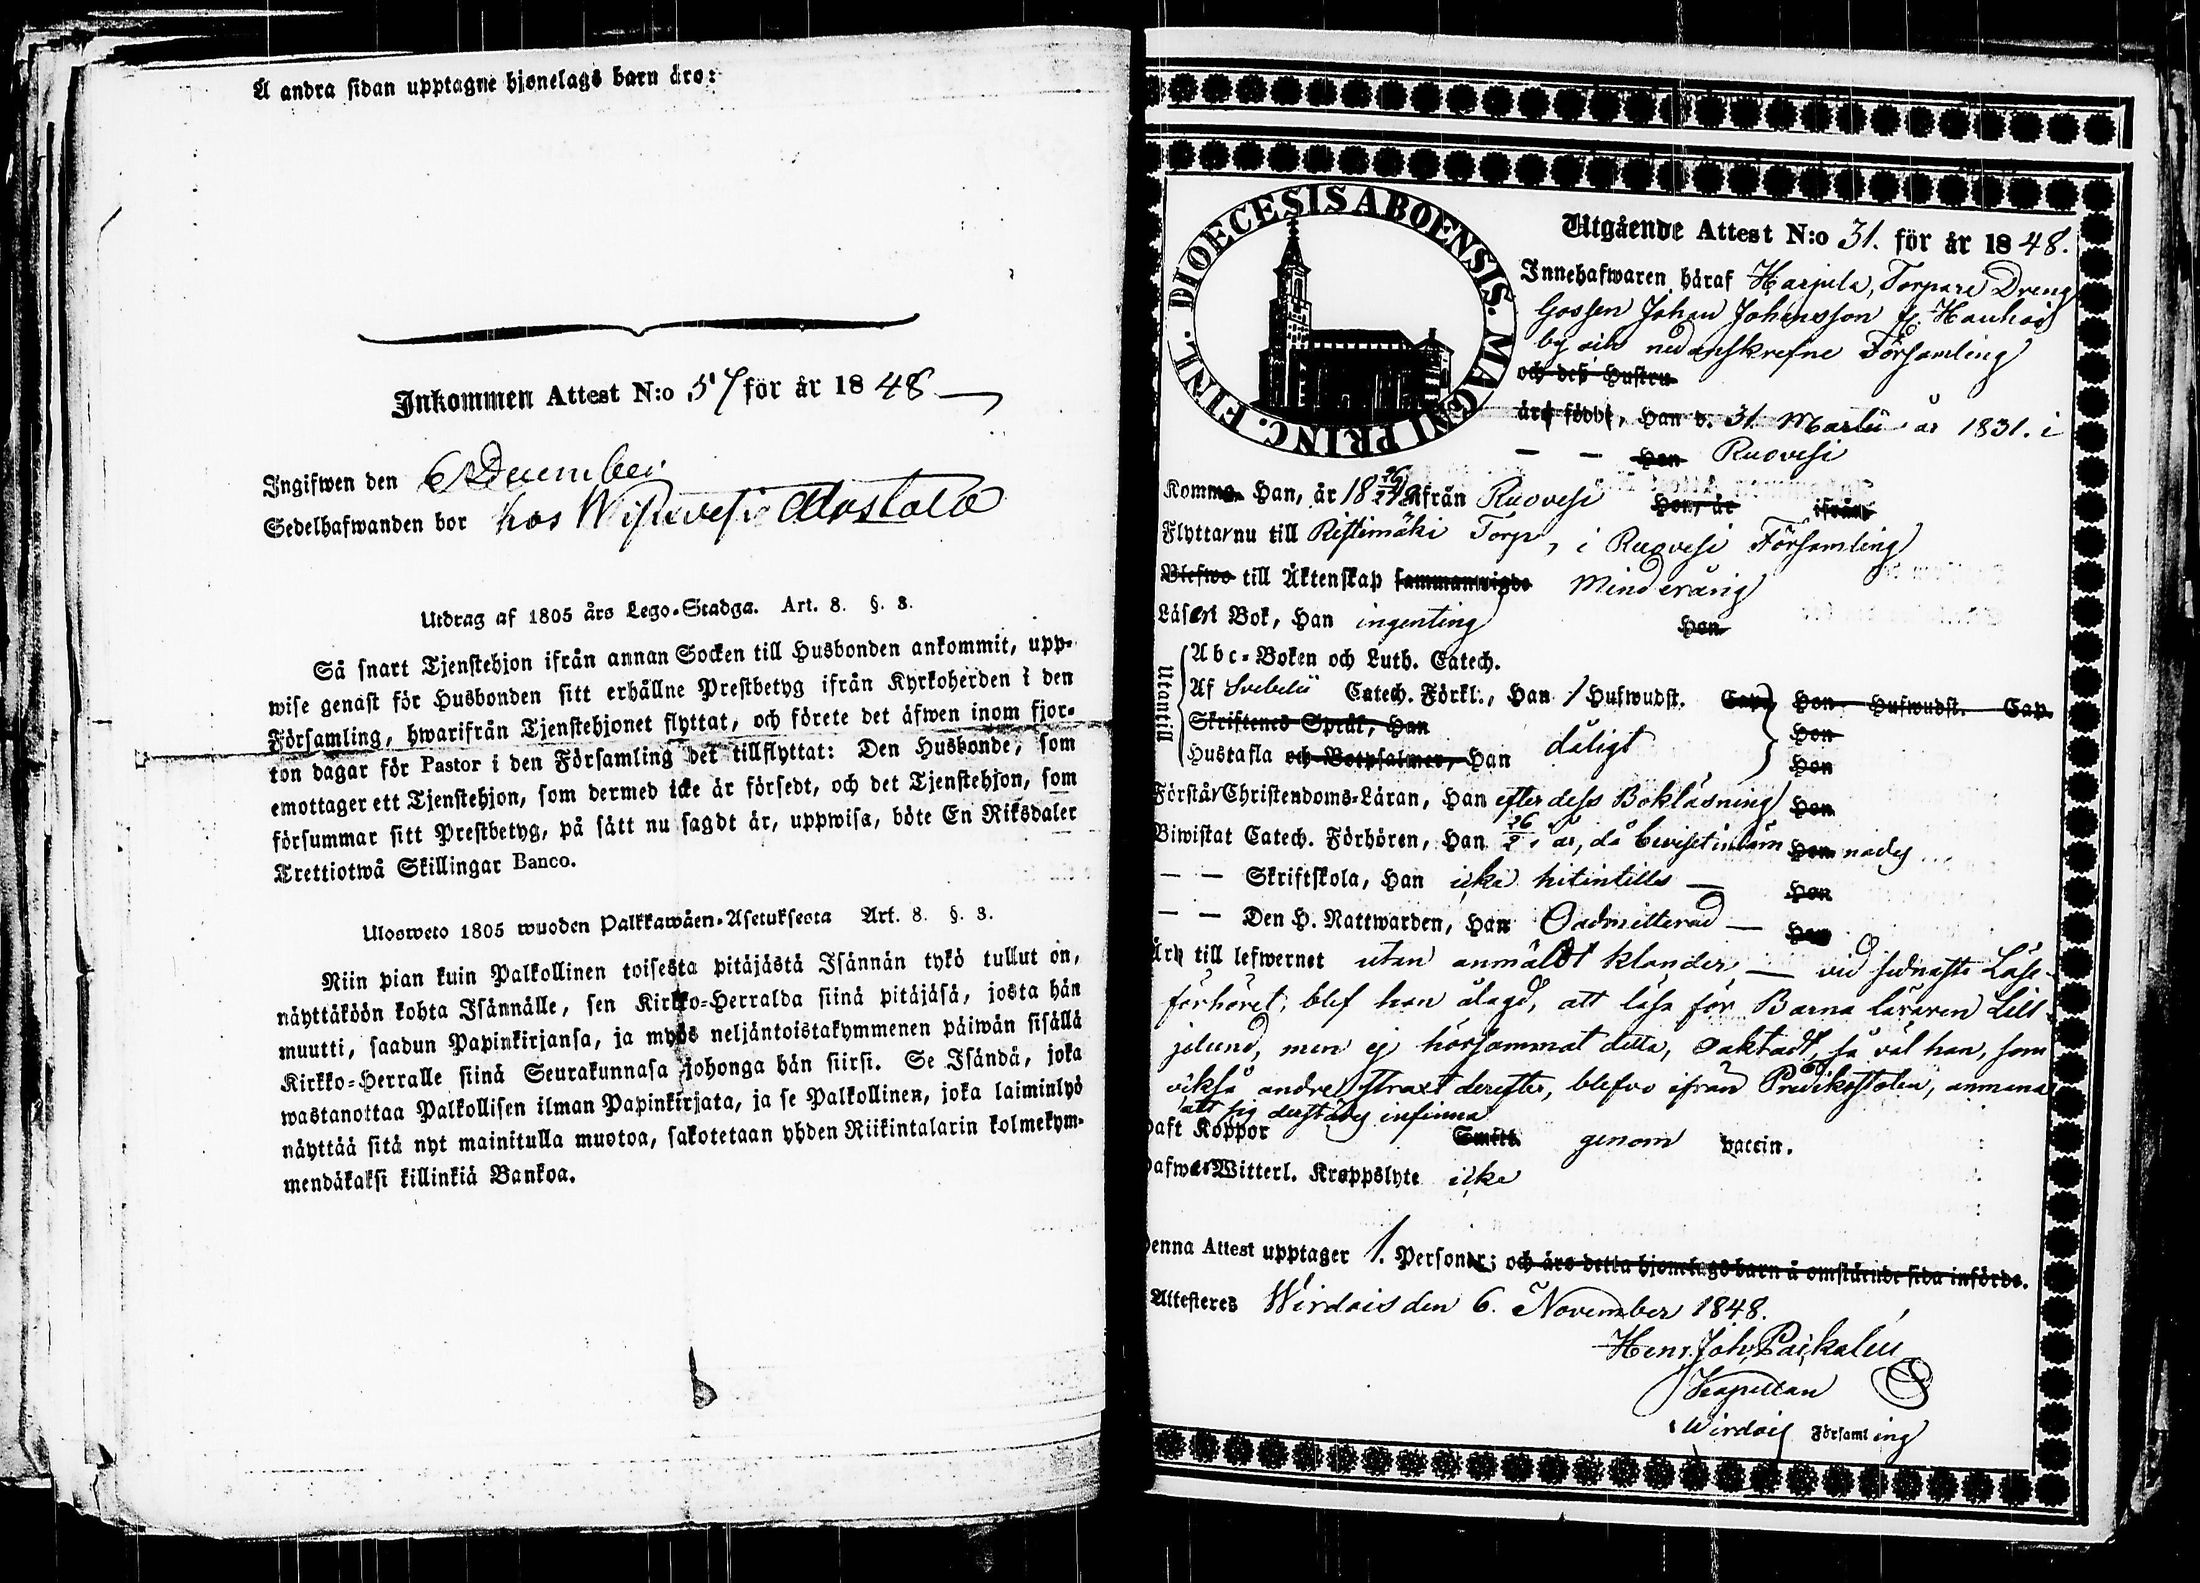 Å andra sidan upptagne hjonelags barn äro:
Inkommen Attest N:o 57 för år 1848
Ingifwen den 6 December
Sedelhafwanden bor hos
Utdrag af 1805 års Lego-Stadga. Art. 8. §. 3.
Så snart Tjenstehjon ifrån annan Socken till Husbonden ankommit, upp-
wise genast för Husbonden sitt erhållne Prestbetyg ifrån Kyrkoherden i den
Församling, hwarifrån Tjenstehjonet flyttat, och förete det äfwen inom fjor-
ton dagar för Pastor i den Församling det tillflyttat: Den Husbonde, som
emottager ett Tjenstehjon, som dermed icke är försedt, och det Tjenstehjon, som
försummar sitt Prestbetyg, på sätt nu sagdt är, uppwisa, böte En Riksdaler
Trettiotwå Skillingar Banco.
Ulosweto 1805 wuoden Palkkawäen-Asetuksesta Art. 8. §. 3.
Niin pian kuin Palkollinen toisesta pitäjästä Isännän tykö tullut on,
näyttäköön kohta Isännälle, sen Kirkko-Herralda siinä pitäjäsä, josta hän
muutti, saadun Papinkirjansa, ja myös neljäntoistakymmenen päiwän sisällä
Kirkko-Herralle siinä Seurakunnasa johonga hän siirsi. Se Isändä, joka
wastanottaa Palkollisen ilman Papinkirjata, ja se Palkollinen, joka laiminlyö
näyttää sitä nyt mainitulla muotoa, sakotetaan yhden Riikintalarin kolmekym-
mendäkaksi killinkiä Bankoa.
DIOECESIS ABOENSIS. MAGNI PRINC. FINL.
Utgående Attest N:o 31. för år 1848.
Innehafwaren häraf Harjula, Torpare Dreng
Gossen Johan Johansson fr. Hauhois
by och nedanskrefne Församling
och deß Hustru
äro födde, Han d. 31 Martii år 1831. i
— — Hon Ruovesi
Komme Han, år 18 ifrån Ruovesi Hon, år ifrån
Flyttar nu till Ristimäki Torp, i Ruovesi Församling
Blefwo till Äktenskap sammanwigde Minderårig
Läser i Bok, Han ingenting Hon
Utantill
Abc-Boken och Luth. Catech.
Af Svebelii Catech. Förkl., Han 1 Hufwudst. Cap. Hon Hufwudst. Cap.
Skriftenes Språk, Han Hon
Hustafla och Botpsalmer, Han dåligt Hon
Förstår Christendoms-Läran, Han efter dess Bokläsning Hon
Biwistat Catech. Förhören, Han 26/2 i år, då bevist Hon
— — Skriftskola, Han icke hitintills — Hon
— — Den H. Nattwarden, Han Oadmitterad — Hon
Är till lefwernet utan anmäldt klander — vid sednaste Läse-
förhöret, blef han ålagd, att läsa för Barna Läraren Lill-
jelund, men ej hörsammat detta, oaktadt, så väl han, som
också andre straxt derefter, blefvo ifrån Predikostolen, anmanade
att sig derstädes infinna
Haft Koppor Smitt. genom vaccin.
Hafwer Witterl. Kroppslyte icke
Denna Attest upptager 1. Personer; och äro detta hjonelags barn å omstående sida införde.
Attesteres Wirdois den 6. November 1848.
Henr. Joh.
Kapellan
Wirdois Församling